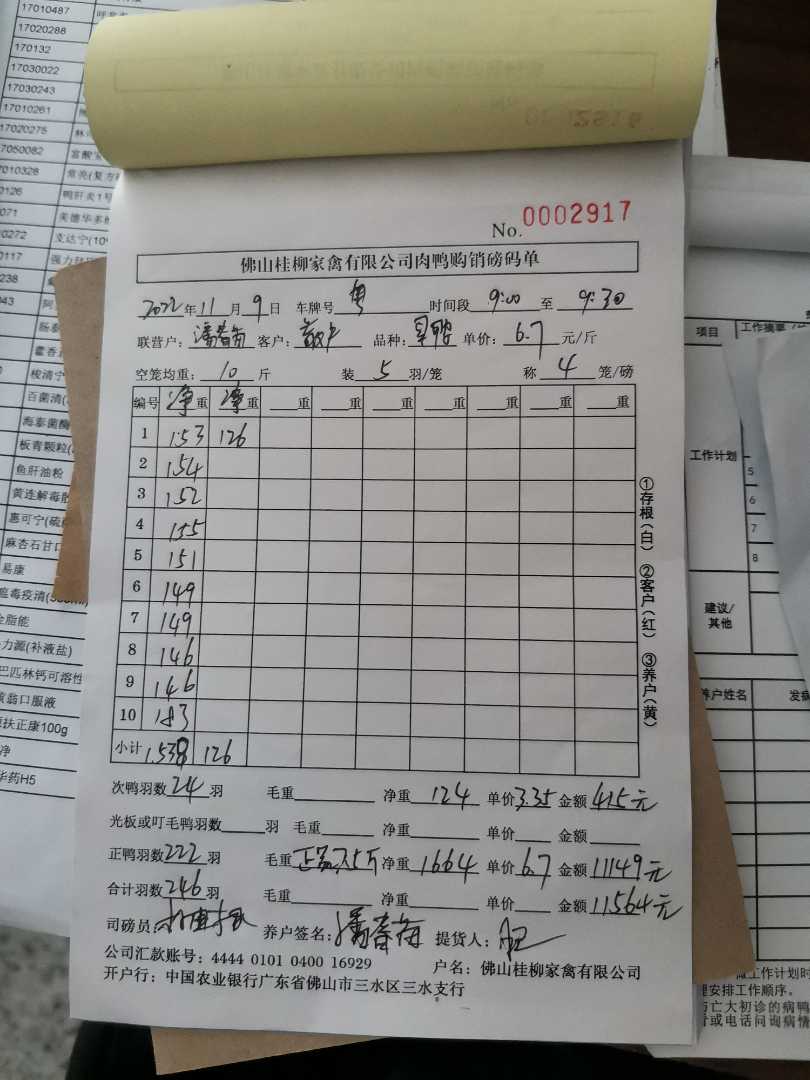 No. 0002917
佛山桂柳家禽有限公司肉鸭购销磅码单
2022年11月9日 车牌号 粤 时间段 9:00 至 9:30
联营户: 潘春苟 客户: 散户 品种: 单价: 6.7 元/斤
空笼均重: 10 斤 装 5 羽/笼 称 4 笼/磅
编号 净重 净重 重 重 重 重 重 重 重
1 153 126
2 154
3 152
4 155
5 151
6 149
7 149
8 146
9 146
10 183
小计 1538 126
①存根(白) ②客户(红) ③养户(黄)
次鸭羽数 24 羽 毛重 净重 124 单价 3.35 金额 415元
光板或叮毛鸭羽数 羽 毛重 净重 单价 金额
正鸭羽数 222 羽 毛重 净重 1664 单价 6.7 金额 11149元
合计羽数 246 羽 毛重 净重 单价 金额 11564元
司磅员: 养户签名: 潘春苟 提货人:
公司汇款账号: 4444 0101 0400 16929 户名: 佛山桂柳家禽有限公司
开户行: 中国农业银行广东省佛山市三水区三水支行
17010487
17020288
170132
17030022
17030243
17010261
17020275
17050082 富酸宝
7010328
0126 鸭肝炎1号
071
0272 支达宁(10%
0117
238
043
梭清宁
百菌清
海泰菌酶
板青颗粒
鱼肝油粉
黄连解毒散
惠可宁(硫
麻杏石甘口
易康
瘟毒疫清(500ml)
金脂能
力源(补液盐)
巴匹林钙可溶性
翁口服液
扶正康100g
净
华药H5
项目 工作摘要
工作计划
5
6
7
8
建议/
其他
养户姓名 发病
做工作计划时
理安排工作顺序。
与亡大初诊的病鸭
或电话问询病情